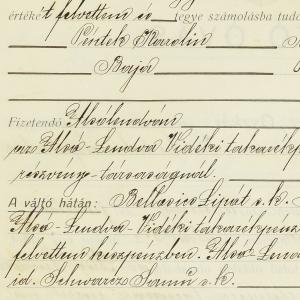 értékét felvettem és tegye számolásba
Pintek Karolin
Baja
Fizetendő Alsólendván
Alsó-Lendva Vidéki takarékp
részvény-társaságnál.
A váltó hátán: Bellavics Lipót s. k.
Alsó-Lendva-Vidéki takarékpénz
felvettem készpénzben. Alsó Lend
id. Schwarcz Samu s. k.